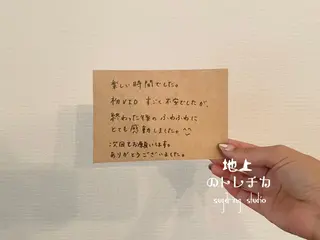 楽しい時間でした。
初VIO すごく不安でしたが、
終わった後の ふわふわに
とても感動しました。^^
次回もお願いします。
ありがとうございました。
地上
のトレチカ
sugaring studio